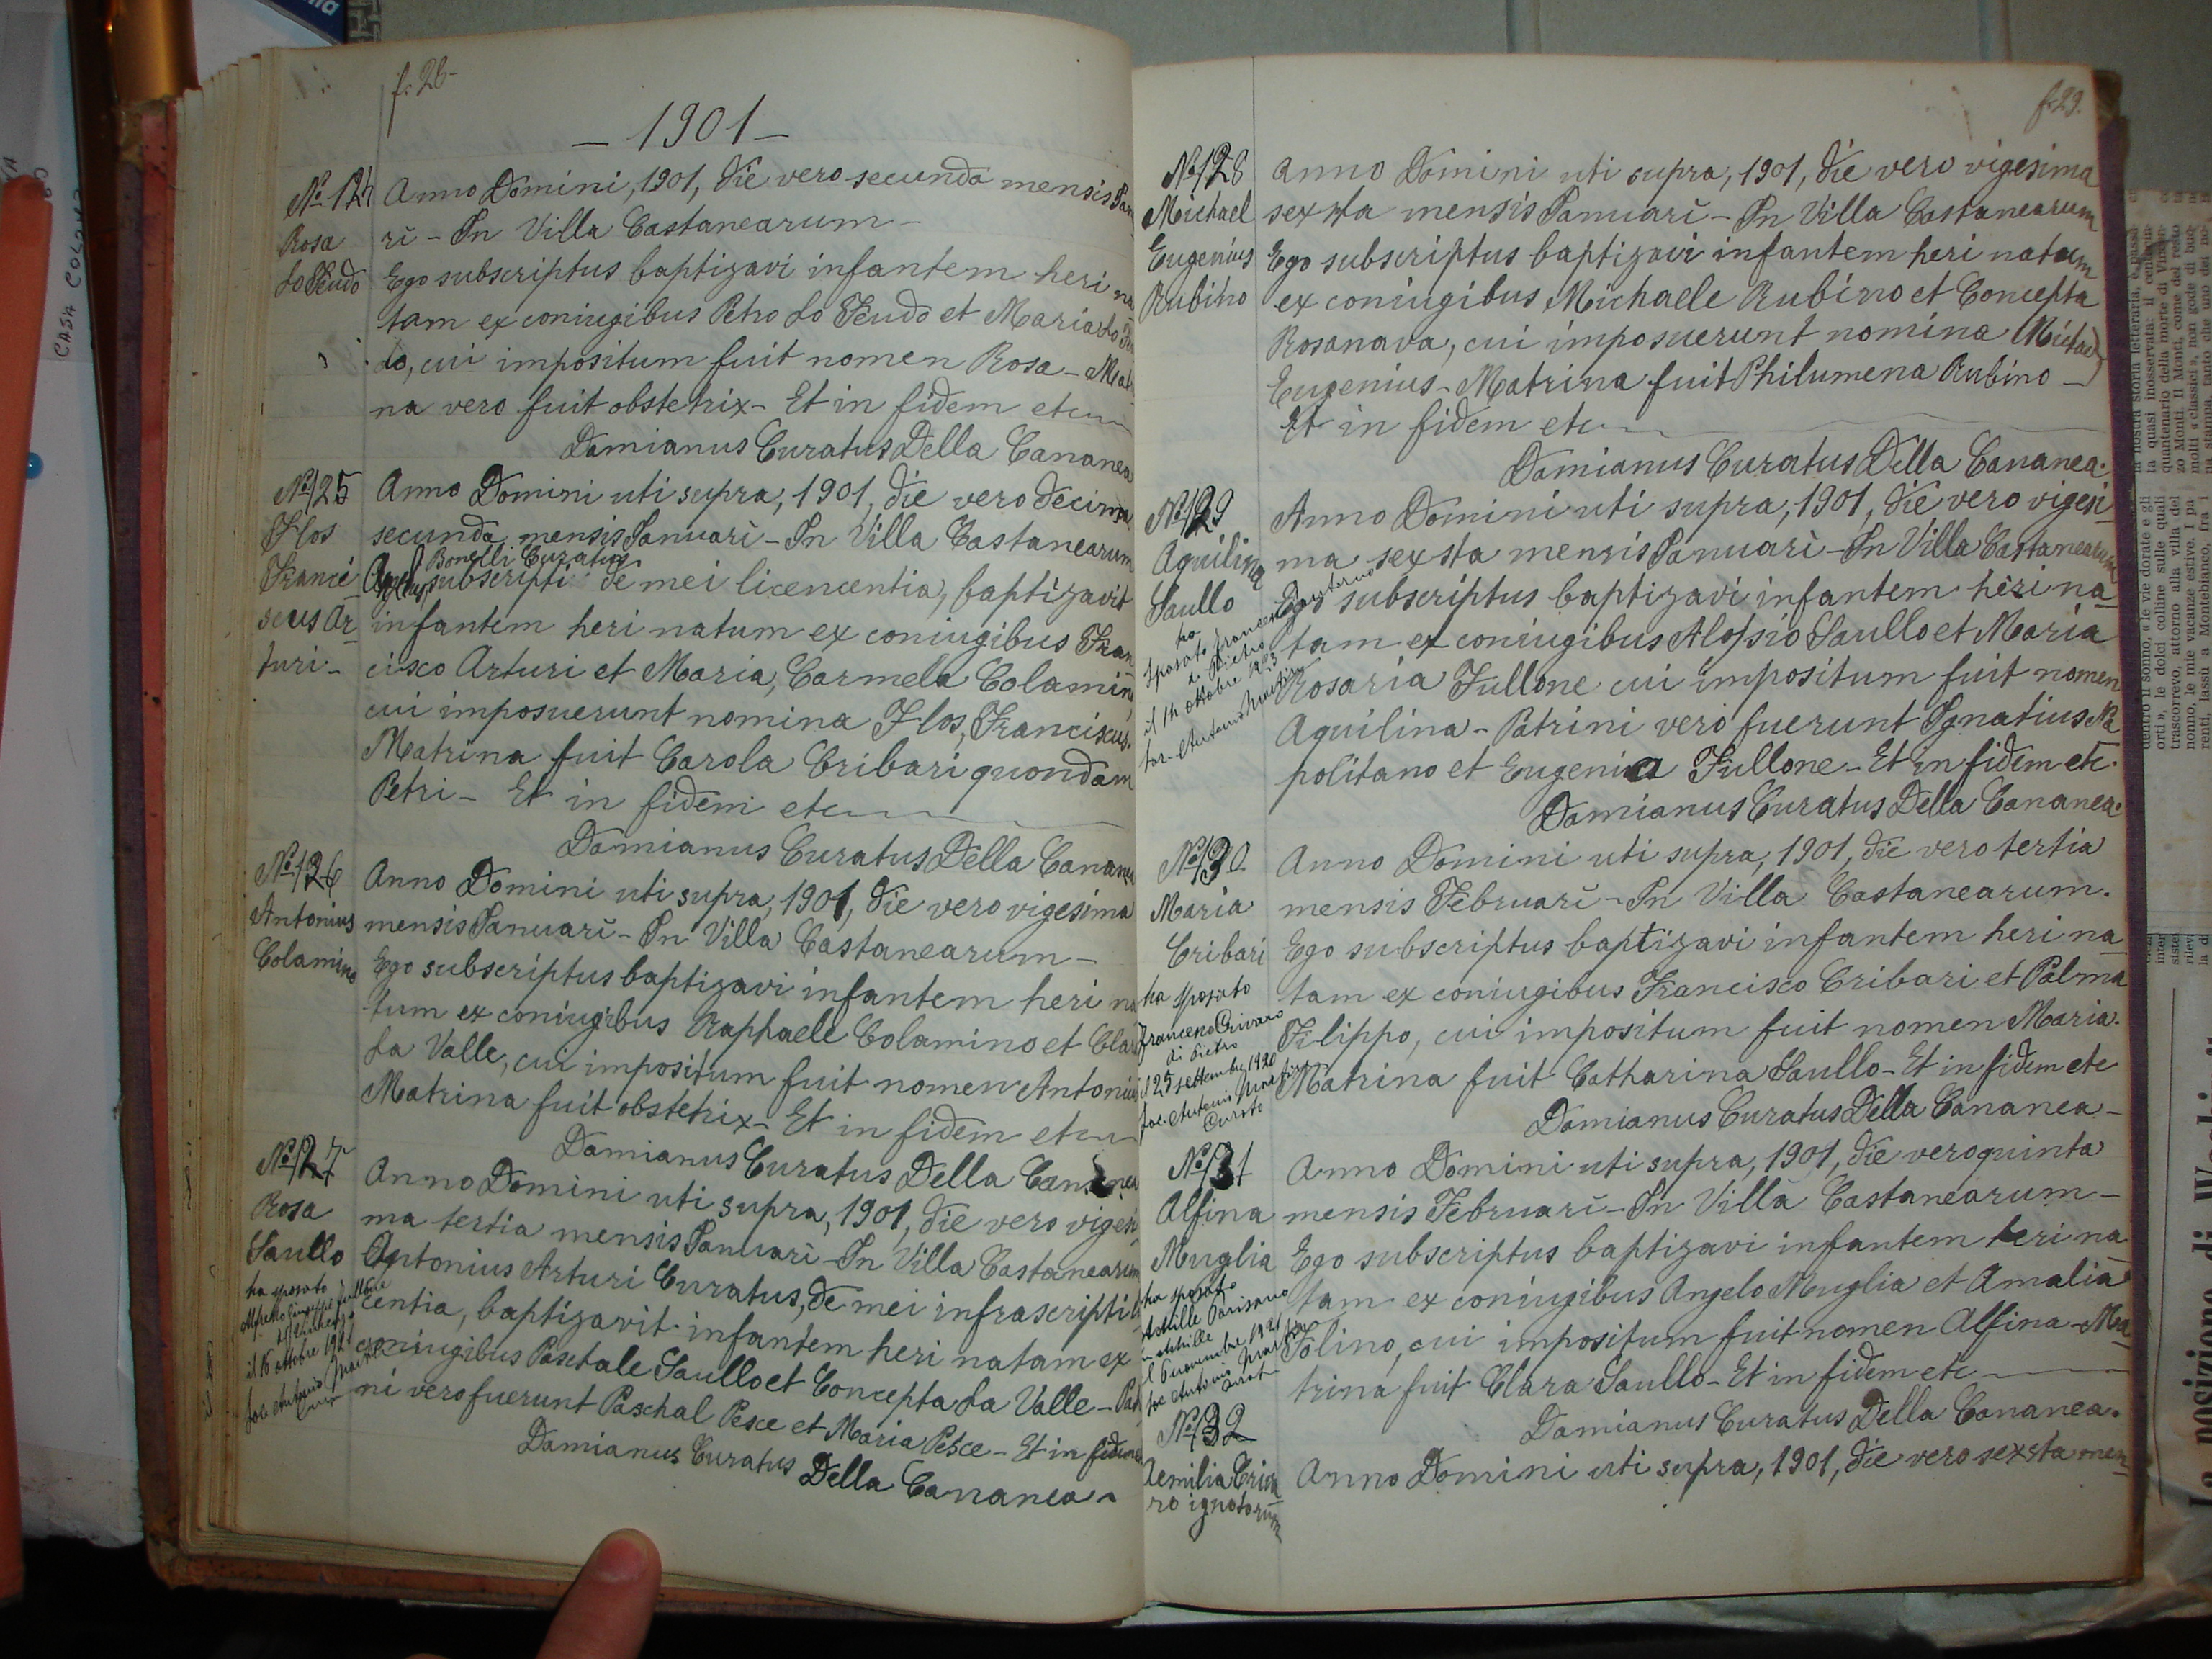 f. 28
— 1901 —
No 124
Rosa
Lo Feudo
Anno Domini, 1901, die vero secunda mensis Janua
rī - In Villa Castanearum -
Ego subscriptus baptizavi infantem heri na
tam ex coniugibus Petro Lo Feudo et Maria Lo Feu
do, cui impositum fuit nomen Rosa - Matri
na vero fuit obstetrix - Et in fidem etc
Damianus Curatus Della Cananea
No 125
Flos
Franci
scus Ar
turi -
Anno Domini uti supra, 1901, die vero decima
secunda mensis Januarī - In Villa Castanearum
Bonelli Curatus
subscripti de mei licencentia, baptizavit
infantem heri natum ex coniugibus Fran
cisco Arturi et Maria, Carmela Colamino,
cui imposuerunt nomina Flos, Franciscus.
Matrina fuit Carola Cribari quondam
Petri - Et in fidem etc
Damianus Curatus Della Cananea
No 126
Antonius
Colamino
Anno Domini uti supra, 1901, die vero vigesima
mensis Januarī - In Villa Castanearum -
Ego subscriptus baptizavi infantem heri na
tum ex coniugibus Raphaele Colamino et Clara
La Valle, cui impositum fuit nomen Antonius
Matrina fuit obstetrix - Et in fidem etc
Damianus Curatus Della Cananea
No 127
Rosa
Saullo
ha sposato
il 15 ottobre 1921
Anno Domini uti supra, 1901, die vero vigesi
ma tertia mensis Januarī - In Villa Castanearum
Antonius Arturi Curatus, de mei infrascripti li
centia, baptizavit infantem heri natam ex
coniugibus Paschale Saullo et Concepta La Valle - Patri
ni vero fuerunt Paschal Pesce et Maria Pesce - Et in fidem
Damianus Curatus Della Cananea -
f. 29.
No 128
Michael
Eugenius
Rubino
Anno Domini uti supra, 1901, die vero vigesima
sexsta mensis Januarī - In Villa Castanearum
Ego subscriptus baptizavi infantem heri natum
ex coniugibus Michaele Rubino et Concepta
Rosanava, cui imposuerunt nomina Michael
Eugenius - Matrina fuit Philumena Rubino -
Et in fidem etc
Damianus Curatus Della Cananea.
No 129
Aquilina
Saullo
ha
sposato Francesco
di Pietro
il 14 ottobre 1923
Anno Domini uti supra, 1901, die vero vigesi
ma sexsta mensis Januarī - In Villa Castanearum
Ego subscriptus baptizavi infantem heri na
tam ex coniugibus Aloysio Saullo et Maria
Rosaria Fullone cui impositum fuit nomen
Aquilina - Patrini vero fuerunt Ignatius Na
politano et Eugenia Fullone - Et in fidem etc.
Damianus Curatus Della Cananea.
No 130
Maria
Cribari
ha sposato
Francesco Crivaro
di Pietro
il 25 settembre 1920
Sac. Antonio
Curato
Anno Domini uti supra, 1901, die vero tertia
mensis Februarī - In Villa Castanearum.
Ego subscriptus baptizavi infantem heri na
tam ex coniugibus Francisco Cribari et Palma
Filippo, cui impositum fuit nomen Maria.
Matrina fuit Catharina Saullo - Et in fidem etc
Damianus Curatus Della Cananea -
No 131
Alfina
Muglia
ha sposato
Achille Parisano
il 6 novembre 1921
Sac Antonio
Anno Domini uti supra, 1901, die vero quinta
mensis Februarī - In Villa Castanearum -
Ego subscriptus baptizavi infantem heri na
tam ex coniugibus Angelo Muglia et Amalia
Folino, cui impositum fuit nomen Alfina - Ma
trina fuit Clara Saullo - Et in fidem etc
Damianus Curatus Della Cananea.
No 132
Aemilia Criva
ro ignotorum
Anno Domini uti supra, 1901, die vero sexsta men
CASA COLONICA